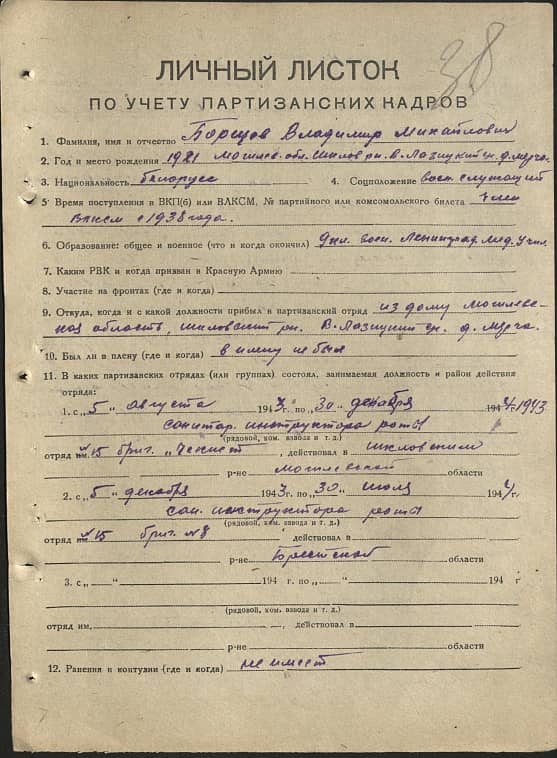 38
ЛИЧНЫЙ ЛИСТОК
ПО УЧЕТУ ПАРТИЗАНСКИХ КАДРОВ
1. Фамилия, имя и отчество Борщов Владимир Михайлович
2. Год и место рождения 1921 Могилев. обл. Шклов. рн. В-Лазицкий д. Мегча
3. Национальность белорусс 4. Соцположение воен. служащий
5 Время поступления в ВКП(б) или ВЛКСМ, № партийного или комсомольского билета член
ВЛКСМ с 1938 года.
6. Образование: общее и военное (что и когда окончил) Ленинград. мед. учил.
7. Каким РВК и когда призван в Красную Армию
8. Участие на фронтах (где и когда)
9. Откуда, когда и с какой должности прибыл в партизанский отряд из дому Могилев-
ская область, шкловский рн. В-Лазицкий д.
10. Был ли в плену (где и когда) в плену не был
11. В каких партизанских отрядах (или группах) состоял, занимаемая должность и район действия
отряда:
1. с „5“ августа 1943 г. по „30“ декабря 194 г. 1943
санитар. инструктора роты
(рядовой, ком. взвода и т. д.)
отряд №15 бриг. "Чекист", действовал в шкловским
р-не могилевской области
2. с „5“ декабря 1943 г. по „30“ июля 1944
сан. инструктора роты
(рядовой, ком. взвода и т. д.)
отряд №15 бриг. №8 действовал в
р-не Брестской области
3. с „ “ 194 г. по „ “ 194 г
(рядовой, ком. взвода и т. д.)
отряд им. , действовал в
р-не области
12. Ранения и контузии (где и когда) не имеет